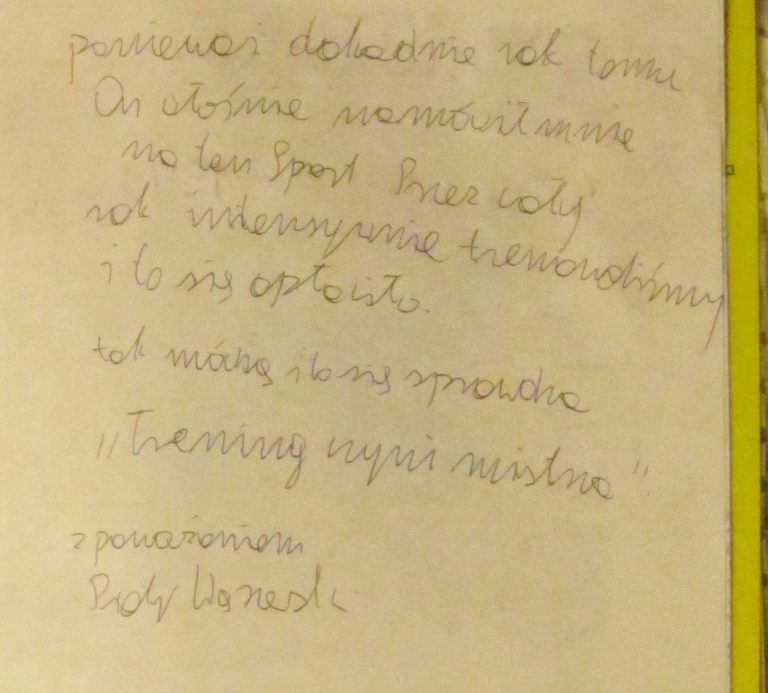 ponieważ dokadnie rok temu
On właśnie namówił mnie
na ten Sport Przez cały
rok intensywnie trenowaliśmy
i to się opłaciło.
tak mówią i to się sprawdza
„Trening czyni mistrza"
z poważaniem